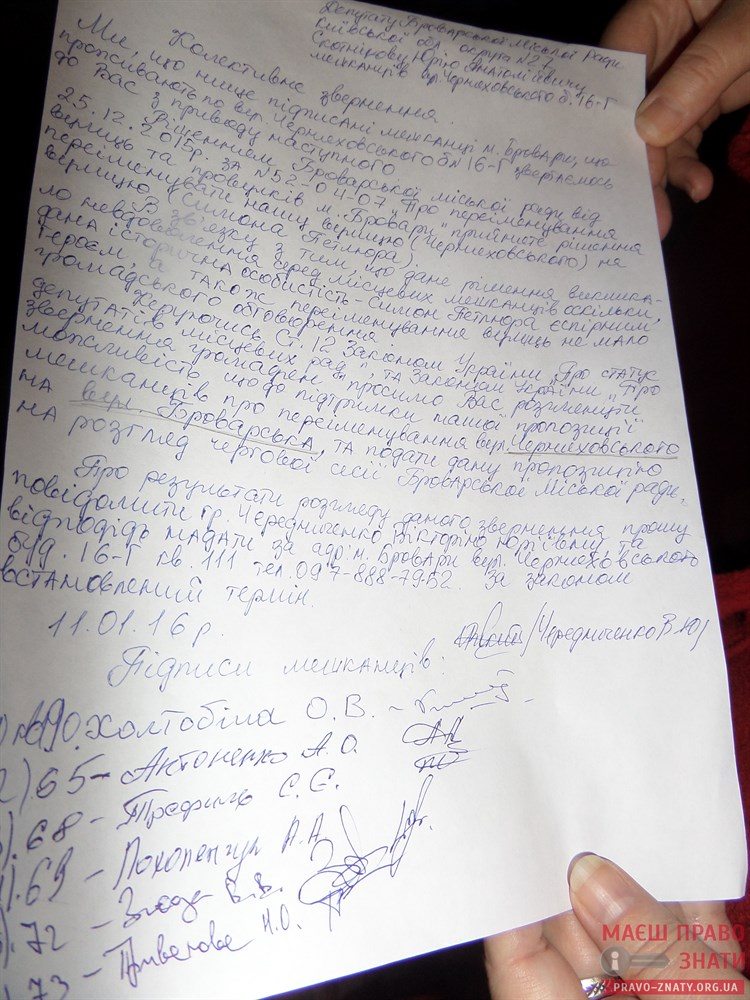 Депутату Броварської міської Ради
Київської обл., округа №27
Скотнікову Юрію Анатолійовичу
мешканців вул. Черняховського б. 16-Г
Колективне звернення.
Ми, що нище підписані мешканці м. Бровари, що
проживають по вул. Черняховського б№16-Г звертаємось
до Вас з приводу наступного
Рішенням Броварської міської ради від
25.12.2015р. за №52-04-07 „Про переіменування
вулиць та провулків м. Бровари" прийняте рішення
переіменувати нашу вулицю (Черняховського) на
вулицю (Симона Петлюра).
В зв'язку з тим, що дане рішення виклика-
ло невдоволення серед місцевих мешканців оскільки,
дана історична особистість - Симон Петлюра є спірним
героєм, а також переіменування вулиць не мало
громадського обговорення.
Керуючись Ст. 12 Законом України „Про статус
депутатів місцевих рад", та Законом України „Про
звернення громадян" просимо Вас, розглянути
можливість щодо підтримки нашої пропозиції
мешканців про переіменування вул. Черняховського
на вул. Броварська, та подати дану пропозицію
на розгляд чергової сесії Броварської міської ради.
Про результати розгляду даного звернення прошу
повідомити гр. Чередніченко Вікторію Юріївну, та
відповідь надати за адр: м. Бровари вул. Черняховського
буд. 16-Г кв. 111 тел. 097-888-7952. за законом
встановлений термін.
11.01.16 р. /Чередніченко В.Ю/
Підписи мешканців:
90. Холтобіна О.В. -
2) 65 - Антоненко А.О.
68 - С.Є.
69 - А.А.
72 - В.В.
73 - Н.О.
МАЄШ ПРАВО
ЗНАТИ
PRAVO-ZNATY.ORG.UA